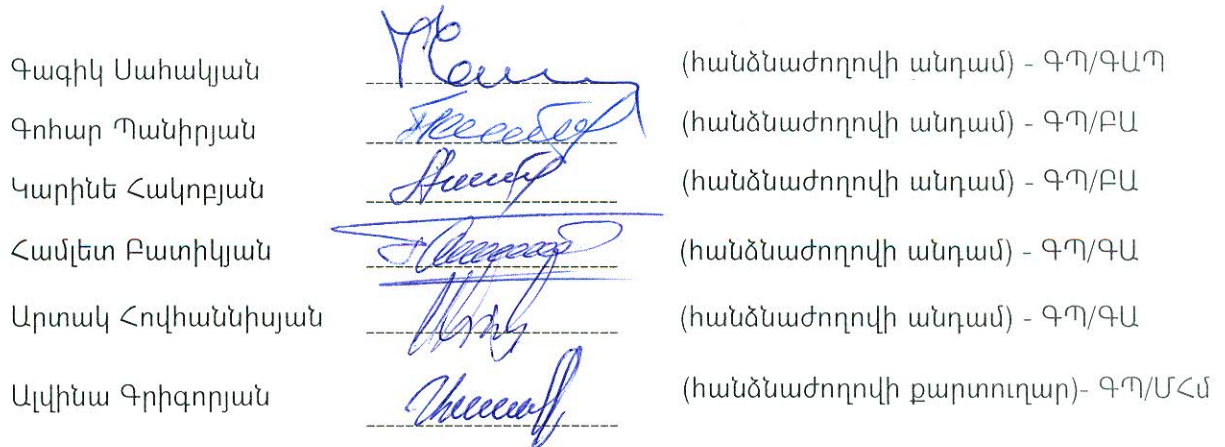 Գագիկ Սահակյան (հանձնաժողովի անդամ) - ԳՊ/ԳԱՊ
Գոհար Պանիրյան (հանձնաժողովի անդամ) - ԳՊ/ԲԱ
Կարինե Հակոբյան (հանձնաժողովի անդամ) - ԳՊ/ԲԱ
Համլետ Բատիկյան (հանձնաժողովի անդամ) - ԳՊ/ԳԱ
Արտակ Հովհաննիսյան (հանձնաժողովի անդամ) - ԳՊ/ԳԱ
Ալվինա Գրիգորյան (հանձնաժողովի քարտուղար)- ԳՊ/ՄՀմ